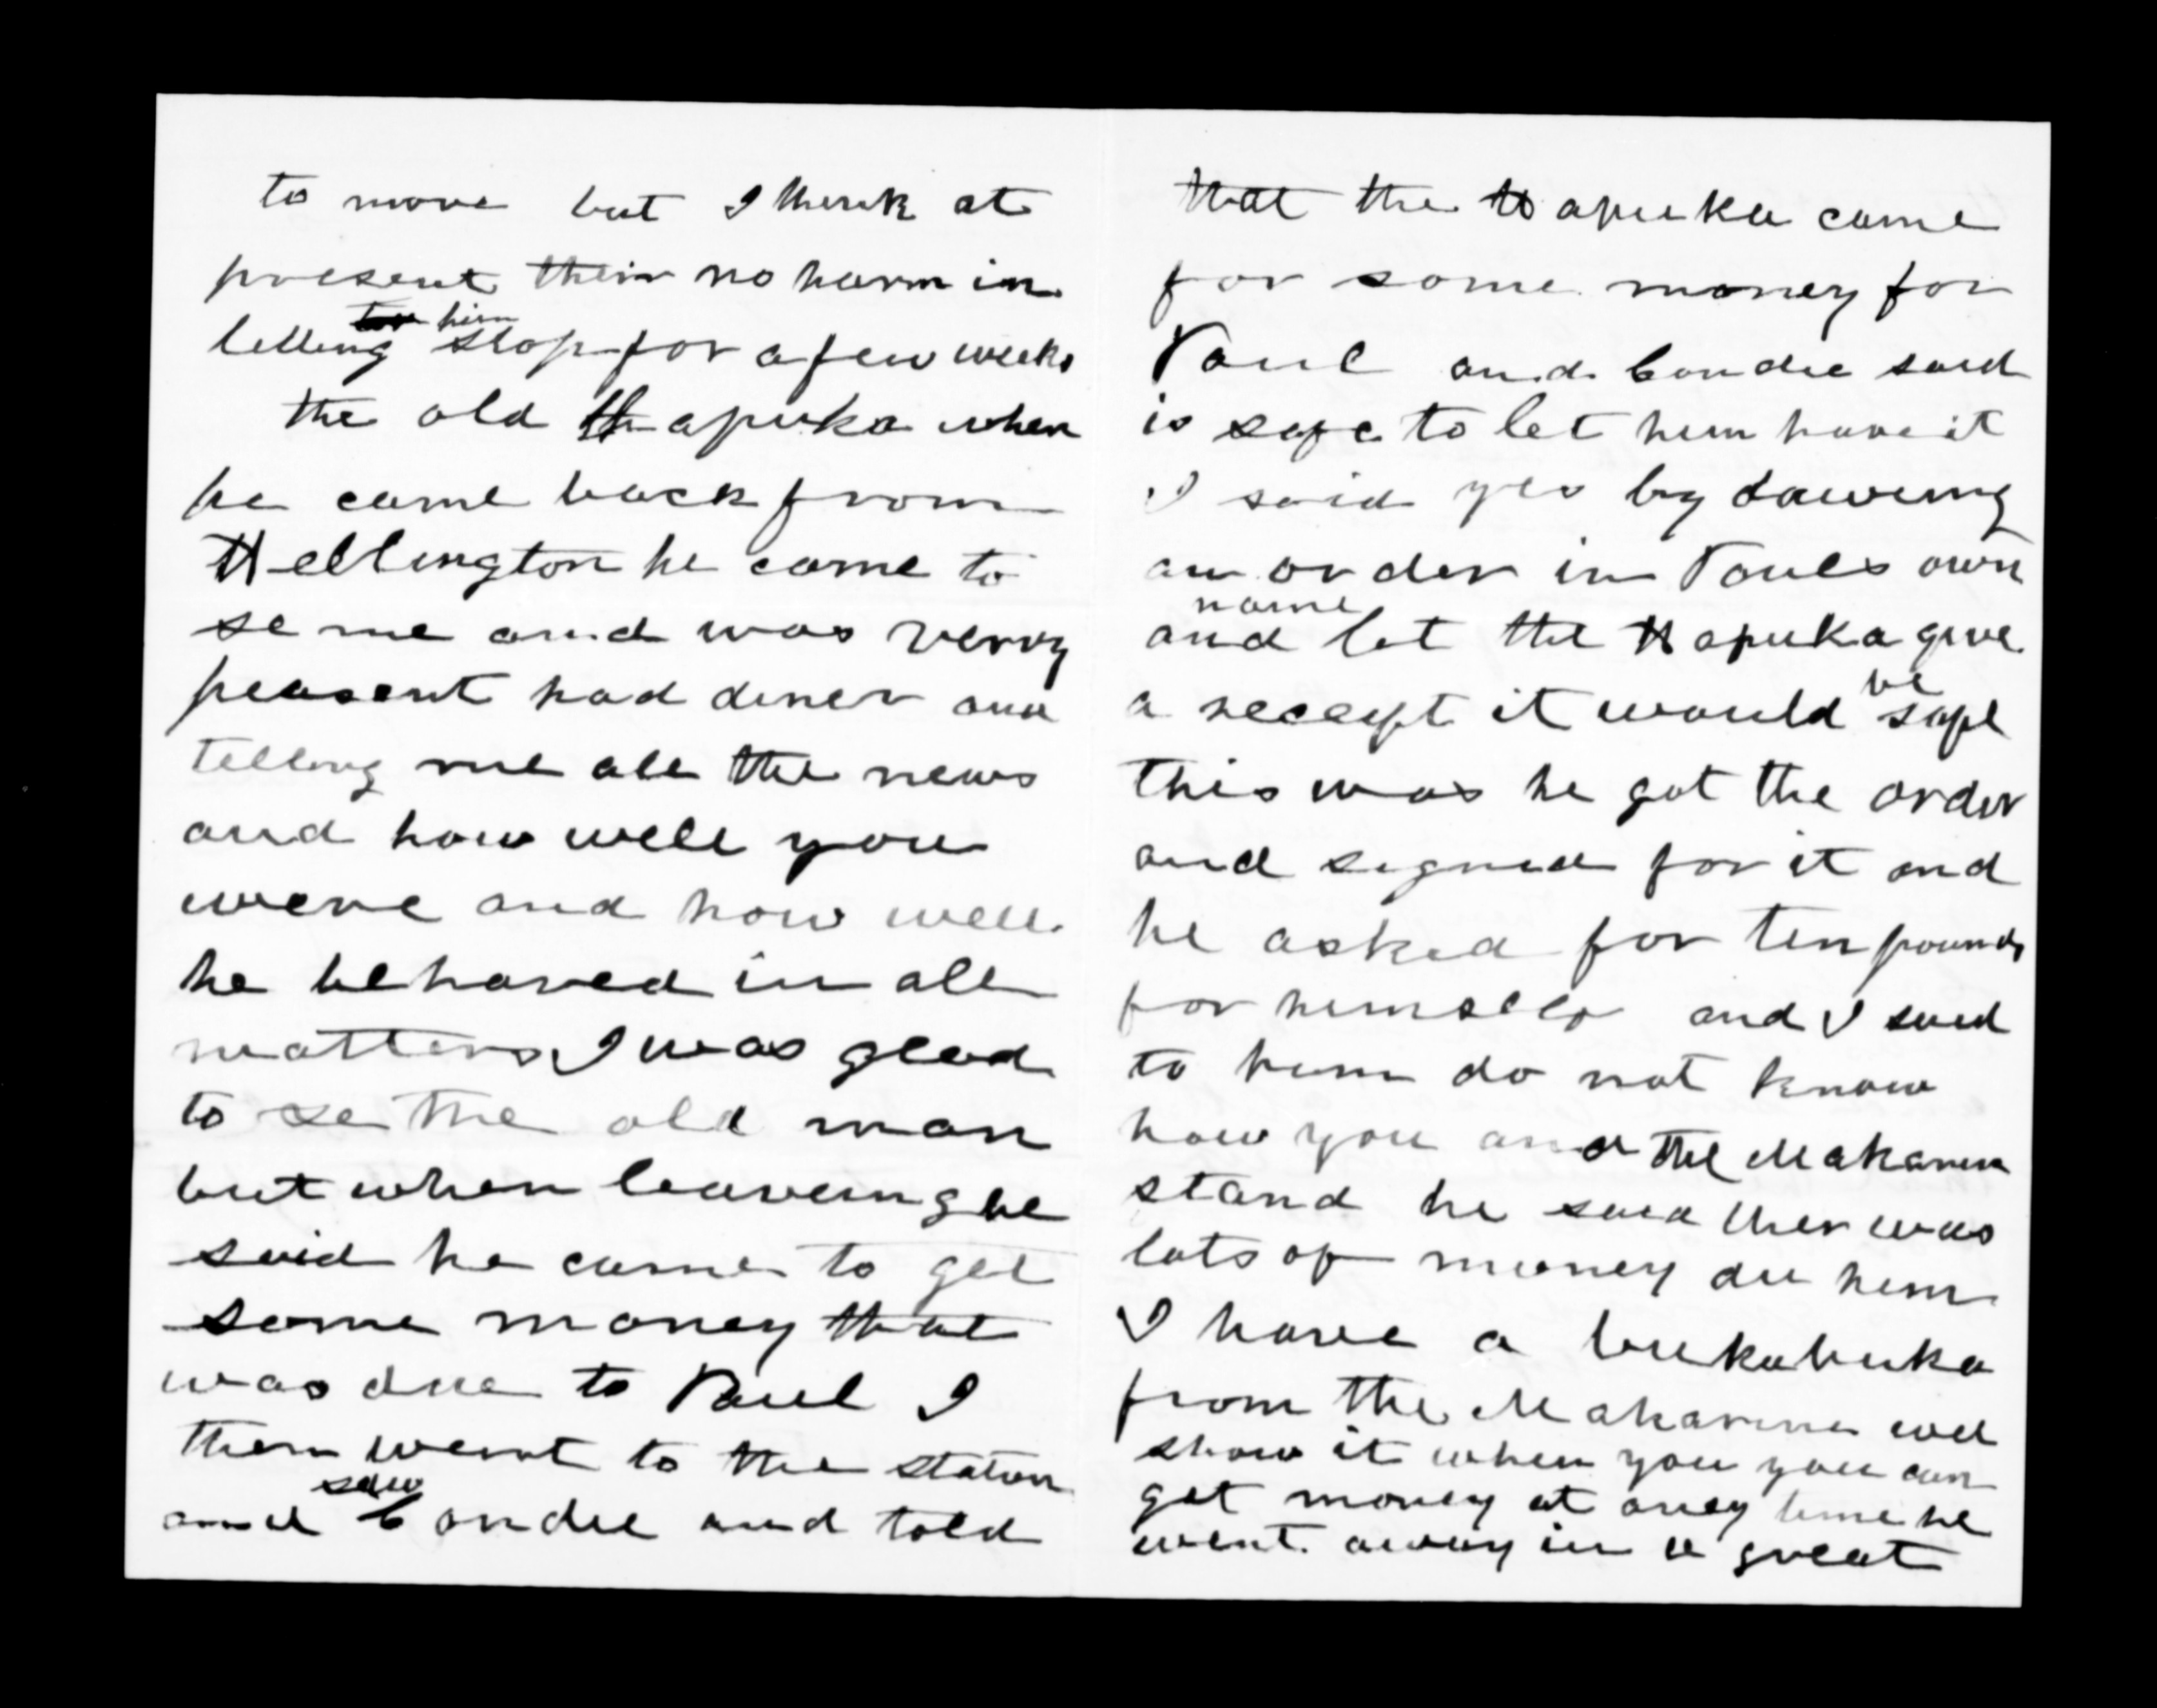 to move but I think at
present their no harm in
letting him stop for a few weeks
the old Hapuka when
he came back from
Wellington he came to
se me and was verry
peasent had diner and
telling me all the news
and how well you
were and how well
he behaved in all
matters I was glad
to se the old man
but when leaveing he
said he came to get
some money that
was due to Paul I
then went to the station
and saw Condie and told
that the Hapuka came
for some money for
Paul and Condie said
is safe to let him have it
I said yes by
an order in Pauls own
name
and let the Hapuka give
a receept it would be safe
this was he got the order
and signed for it and
he asked for ten pounds
for himself and I said
to him do not know
how you and the Makarini
stand he said ther was
lots of money du him
I have a bukabuka
from the Makarini wel
show it when you you can
get money at aney time he
went away in a great